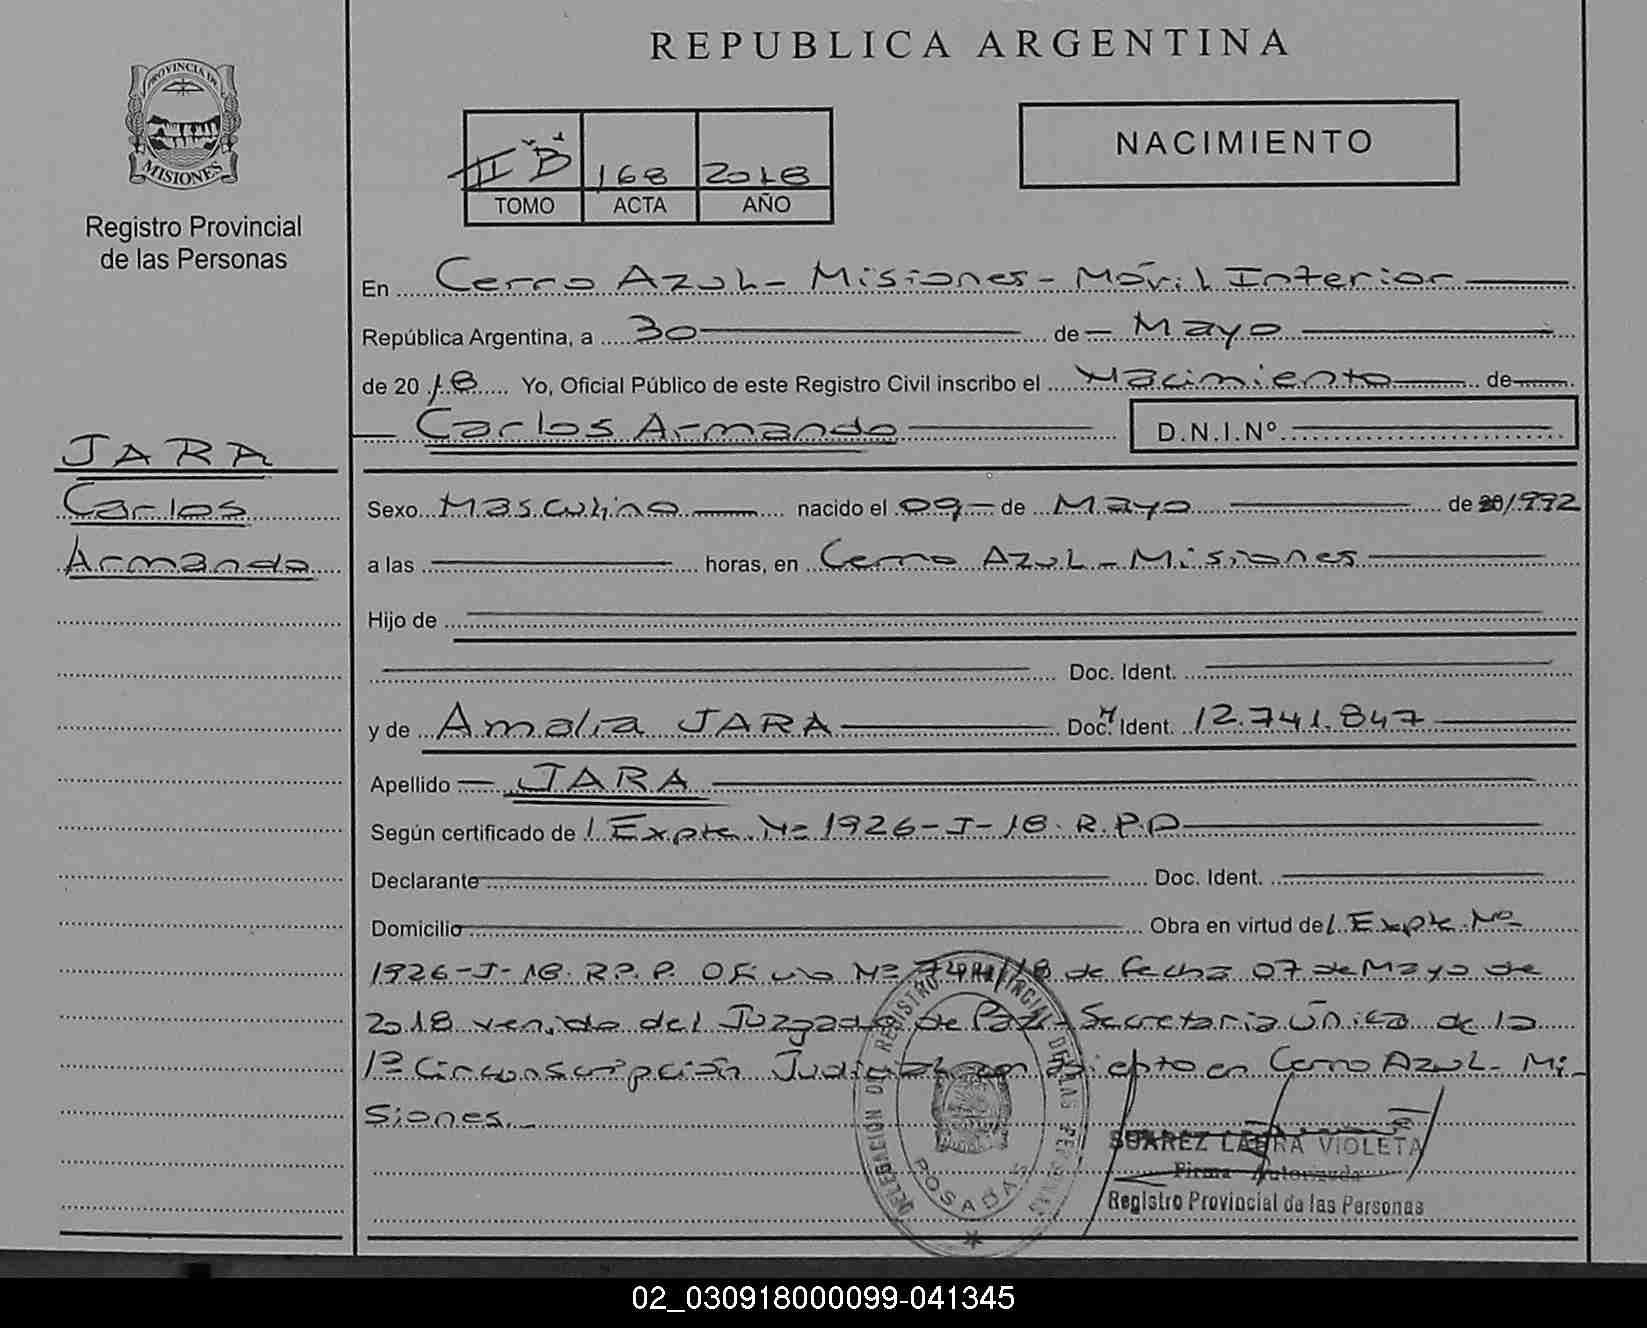 REPUBLICA ARGENTINA
PROVINCIA DE
MISIONES
Registro Provincial
de las Personas
II "B" 168 2018
TOMO ACTA AÑO
NACIMIENTO
En Cerro Azul - Misiones - Móvil Interior
República Argentina, a 30 de Mayo
de 2018 Yo, Oficial Público de este Registro Civil inscribo el Nacimiento de
Carlos Armando D.N.I.Nº
JARA
Carlos
Armando
Sexo Masculino nacido el 09 de Mayo de 20/1992
a las horas, en Cerro Azul - Misiones
Hijo de
Doc. Ident.
y de Amalia JARA Doc. Ident. 12.741.847
Apellido JARA
Según certificado de l Expte Nº 1926-J-18. R.P.P
Declarante Doc. Ident.
Domicilio Obra en virtud del Expte Nº
1926-J-18. R.P.P. Oficio Nº /18 de fecha 07 de Mayo de
2018 venido del Juzgado de Paz - Secretaria Única de la
1º Circunscripción Judicial con asiento en Cerro Azul - Mi-
siones.
DELEGACIÓN DE REGISTRO PROVINCIAL DE LAS PERSONAS
POSADAS
SUAREZ LAURA VIOLETA
Firma Autorizada
Registro Provincial de las Personas
02_030918000099-041345